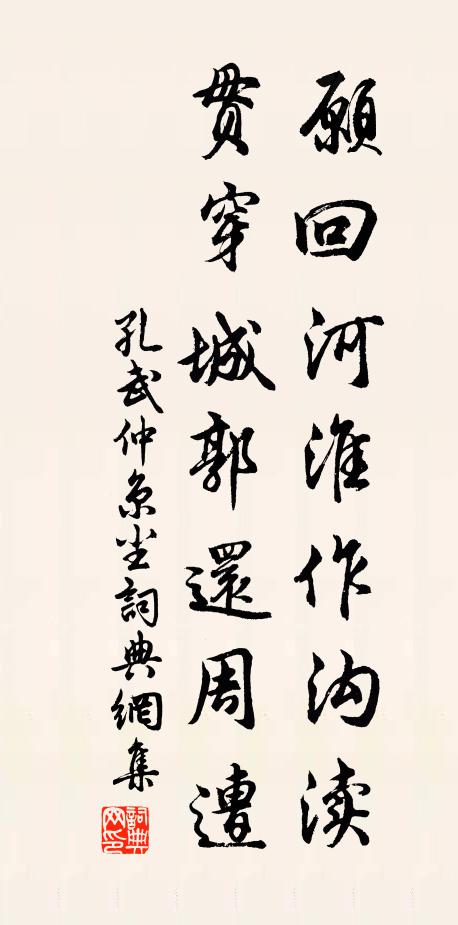 願回河淮作沟渎
贯穿城郭還周遭
孔武仲京尘詞典網集
詞典网印